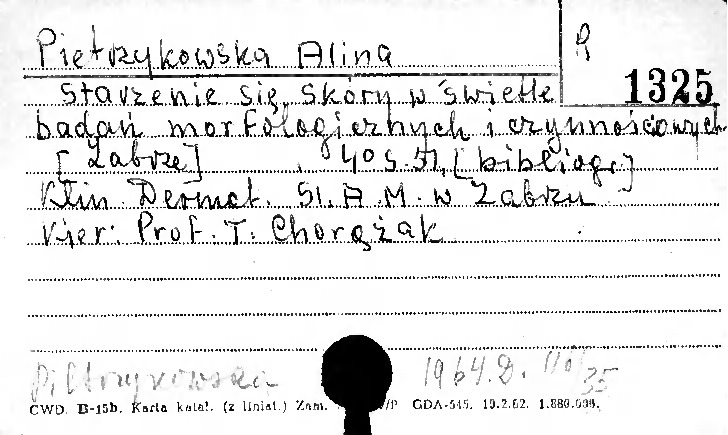 Pietrzykowska Alina
R
1325
Starzenie się skóry w świetle
badań morfologicznych i czynnościowych
[Zabrze] 4° s. 51, [bibliogr.]
Klin. Dermat. Śl. A.M. w Zabrzu
Kier: Prof. T. Chorążak
Pietrzykowska 1964.D.
CWD. B-15b. Karta katal. (z liniat.) Zam. GDA-545. 10.2.62. 1.880.000.